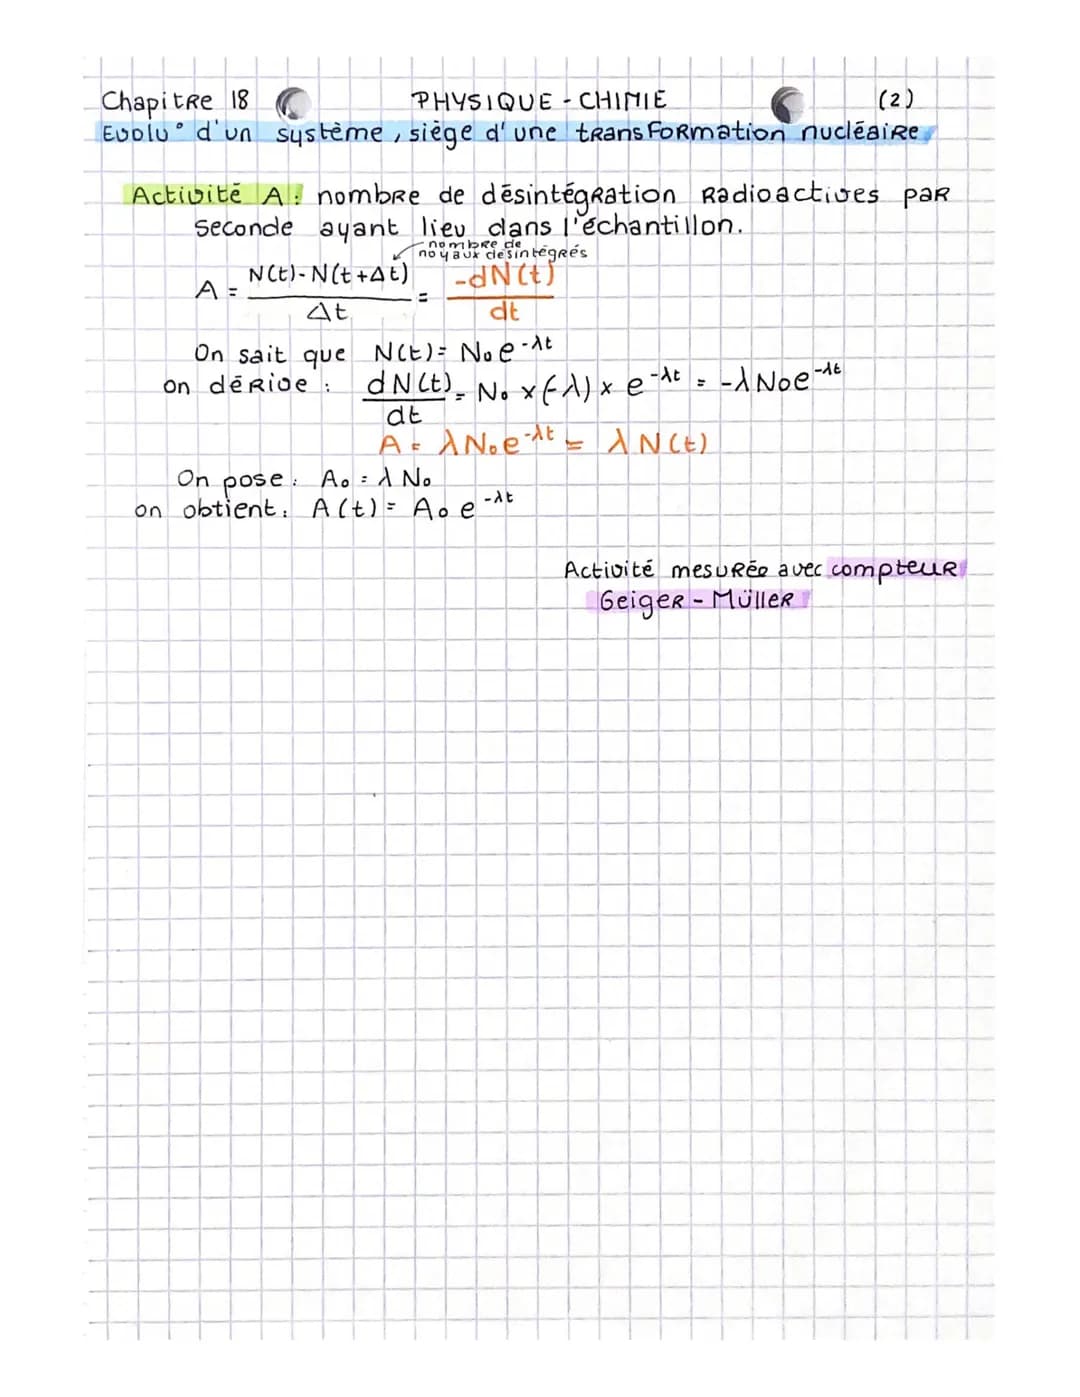 Chapitre 18 PHYSIQUE - CHIMIE (2)
Evolu° d'un système, siège d'une transformation nucléaire
Activité A : nombre de désintégration radioactives par
seconde ayant lieu dans l'échantillon.
nombre de
noyaux désintégrés
A = N(t) - N(t+Δt) / Δt = -dN(t) / dt
On sait que N(t) = N₀ e^-λt
on dérive : dN(t) / dt = N₀ × (-λ) × e^-λt = -λN₀e^-λt
A = λN₀e^-λt = λN(t)
On pose : A₀ = λ N₀
on obtient : A(t) = A₀ e^-λt
Activité mesurée avec compteur
Geiger - Müller